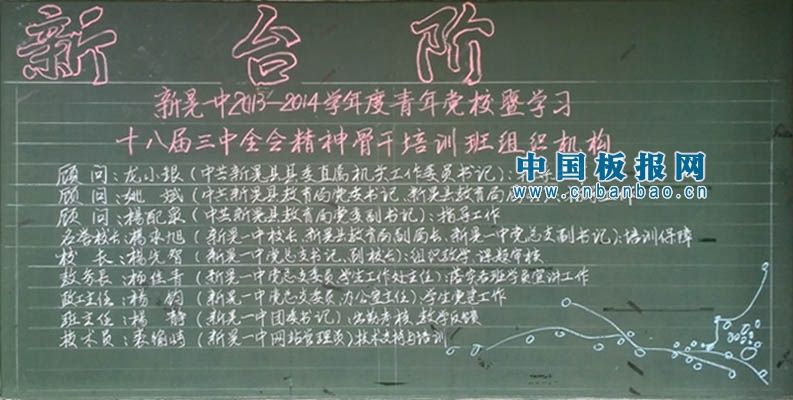 新台阶
新晃一中2013-2014学年度青年党校暨学习
十八届三中全会精神骨干培训班组织机构
中国板报网
www.cnbanbao.cn
顾问:龙小银(中共新晃县县委直属机关工作委员书记):
顾问:姚斌(中共新晃县教育局党委书记、新晃县教育局
顾问:杨配泉(中共新晃县教育局党委副书记):指导工作
名誉校长:杨来旭(新晃一中校长、新晃县教育局副局长、新晃一中党总支副书记):培训保障
校长:杨先智(新晃一中党总支书记、副校长):组织教学、课题审核
教务长:杨佳青(新晃一中党总支委员、学生工作处主任):落实各班学员宣讲工作
政工主任:杨钧(新晃一中党总支委员、办公室主任):学生党建工作
班主任:杨静(新晃一中团委书记):出勤考核、教学反馈
技术员:(新晃一中网站管理员):技术支持与培训